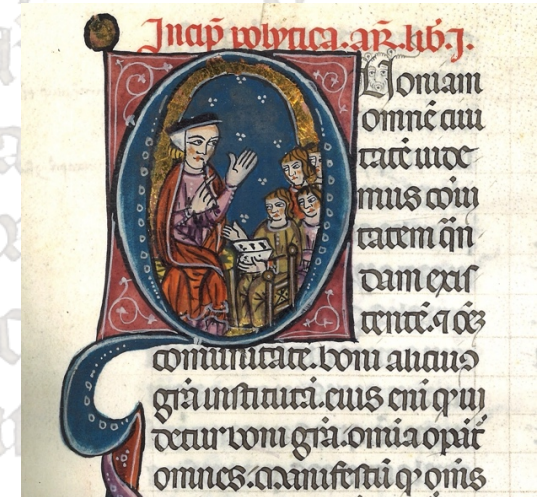 Incip̄ polytica. ar̄. lib. j.
Quoniam
omnē ciui
tatē uide
mus cōm
tatem q̄n
dam exis
tentē. ⁊ oēꝫ
com̄unitatē. boni alicuiꝰ
grā institutā. eius eni q̄ ui
detur boni grā. omīa opāt̄
omnes. Manifestū ꝙ om̄s